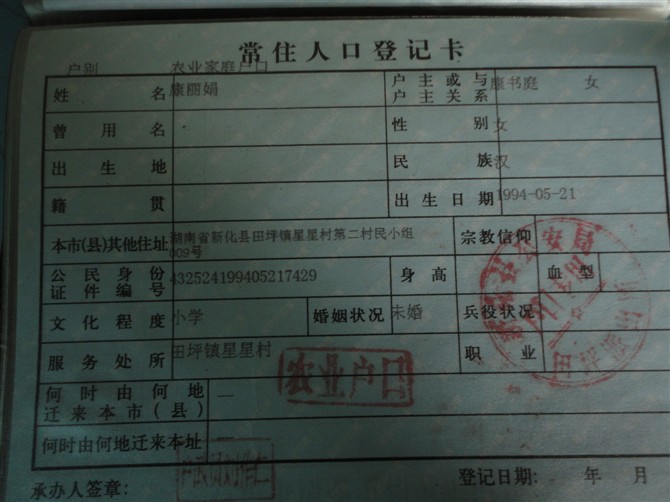 常住人口登记卡
户别 农业家庭户口
姓名 康丽娟 户主或与户主关系 康书庭 女
曾用名 性别 女
出生地 民族 汉
籍贯 出生日期 1994-05-21
本市(县)其他住址 湖南省新化县田坪镇星星村第二村民小组009号 宗教信仰
公民身份证件编号 432524199405217429 身高 血型
文化程度 小学 婚姻状况 未婚 兵役状况
服务处所 田坪镇星星村 职业
农业户口
何时由何地迁来本市(县) —
何时由何地迁来本址
承办人签章: 登记日期: 年 月